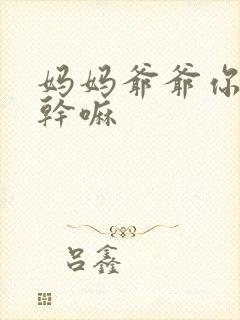 妈妈爷爷你
幹嘛
吕鑫